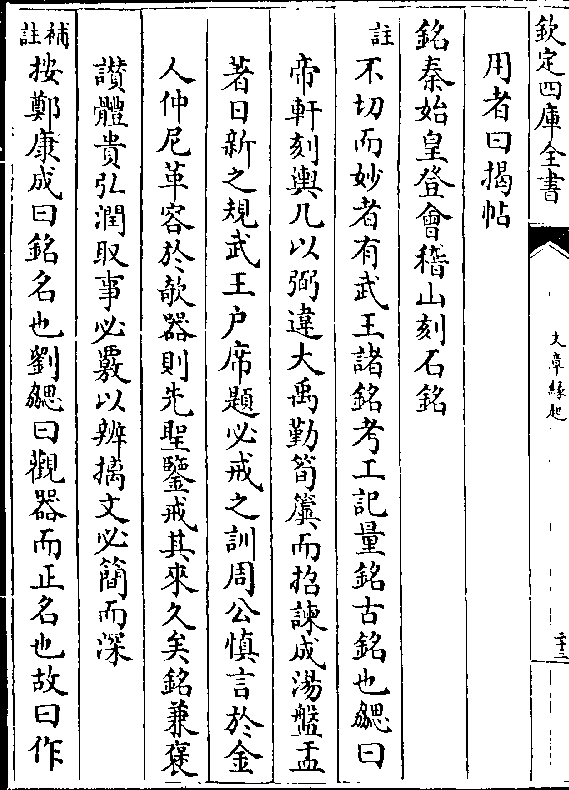 欽定四庫全書
文章緣起
二十三
用者曰揭帖
銘秦始皇登會稽山刻石銘
註
不切而妙者有武王諸銘考工記量銘古銘也勰曰
帝軒刻輿几以弼違大禹勤筍簴而招諫成湯盤盂
著日新之規武王户席題必戒之訓周公慎言於金
人仲尼革容於欹器則先聖鑒戒其來久矣銘兼褒
讃體貴弘潤取事必覈以辨摛文必簡而深
補註
按鄭康成曰銘名也劉勰曰觀器而正名也故曰作